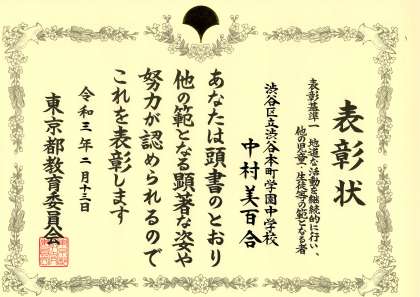 表彰状
表彰基準一 地道な活動を継続的に行い、
他の児童・生徒等の範となる者
渋谷区立渋谷本町学園中学校
中村美百合
あなたは頭書のとおり
他の範となる顕著な姿や
努力が認められるので
これを表彰します
令和三年二月十三日
東京都教育委員会